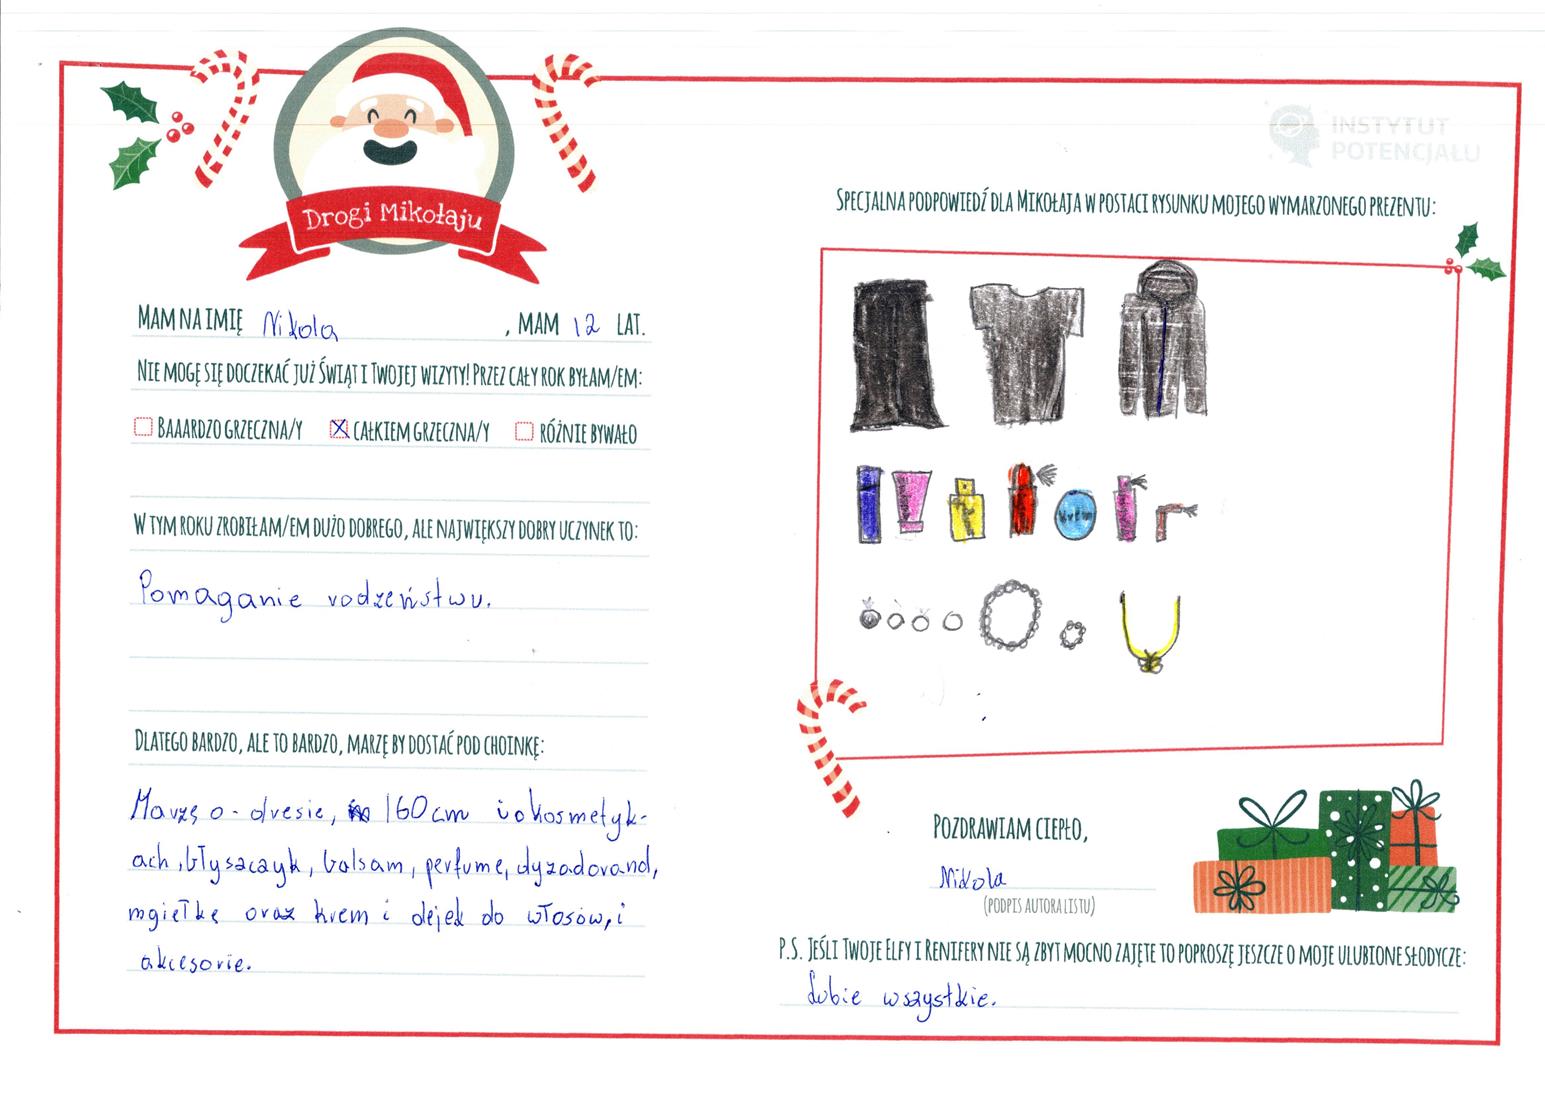 Drogi Mikołaju
INSTYTUT
POTENCJAŁU
MAM NA IMIĘ Nikola, MAM 12 LAT.
NIE MOGĘ SIĘ DOCZEKAĆ JUŻ ŚWIĄT I TWOJEJ WIZYTY! PRZEZ CAŁY ROK BYŁAM/EM:
BAAARDZO GRZECZNA/Y CAŁKIEM GRZECZNA/Y RÓŻNIE BYWAŁO
W TYM ROKU ZROBIŁAM/EM DUŻO DOBREGO, ALE NAJWIĘKSZY DOBRY UCZYNEK TO:
Pomaganie rodzeństwu.
DLATEGO BARDZO, ALE TO BARDZO, MARZĘ BY DOSTAĆ POD CHOINKĘ:
Marzę o dresie, 160cm i o kosmetyk-
ach, błyszczyk, balsam, perfume, dyzodorand,
mgiełkę oraz krem i olejek do włosów, i
akcesorie.
SPECJALNA PODPOWIEDŹ DLA MIKOŁAJA W POSTACI RYSUNKU MOJEGO WYMARZONEGO PREZENTU:
krem
POZDRAWIAM CIEPŁO,
Nikola
(PODPIS AUTORA LISTU)
P.S. JEŚLI TWOJE ELFY I RENIFERY NIE SĄ ZBYT MOCNO ZAJĘTE TO POPROSZĘ JESZCZE O MOJE ULUBIONE SŁODYCZE:
Lubie wszystkie.